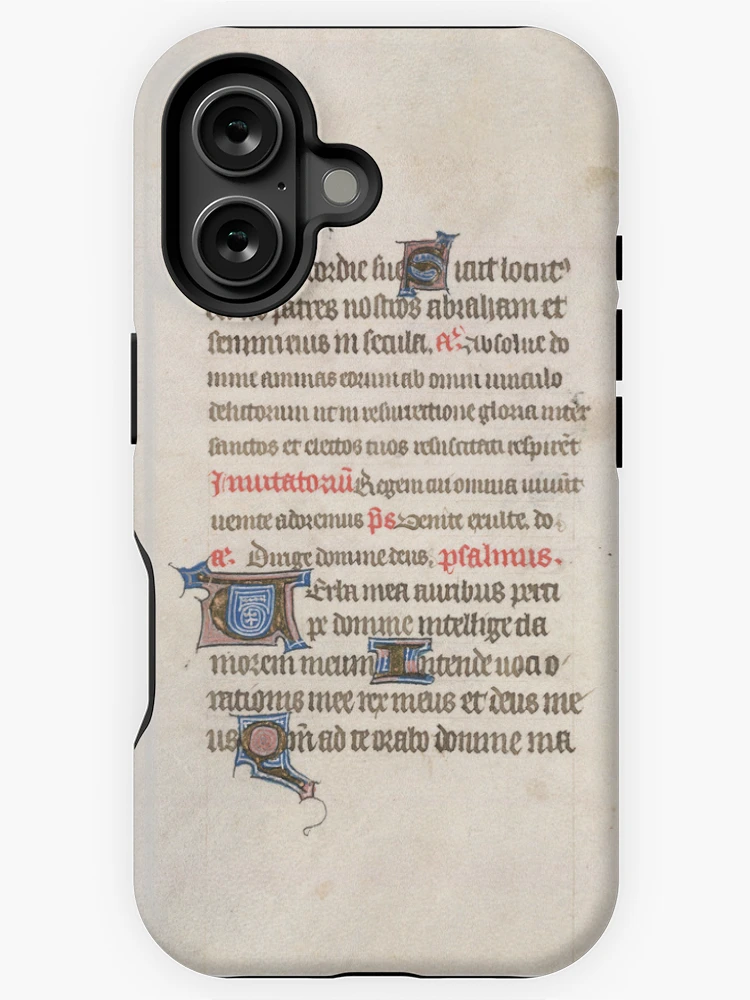 cordie sue Sicut locut⁹
patres nostros abraham et
semini eius in secula. aͤ. Absolue do
mine animas eorum ab omni uinculo
delictorum ut in resurrectione gloria inter
sanctos et electos tuos resuscitati respirēt
Inuitatoriū Regem cui omnia uiuūt
uenite adoremus p̄s Uenite exulte. do
aͤ. Dirige domine deus. psalmus.
Uerba mea auribus perci
pe domine intellige cla
morem meum Intende uoci o
rationis mee rex meus et deus me
us Qm̄ ad te orabo domine ma